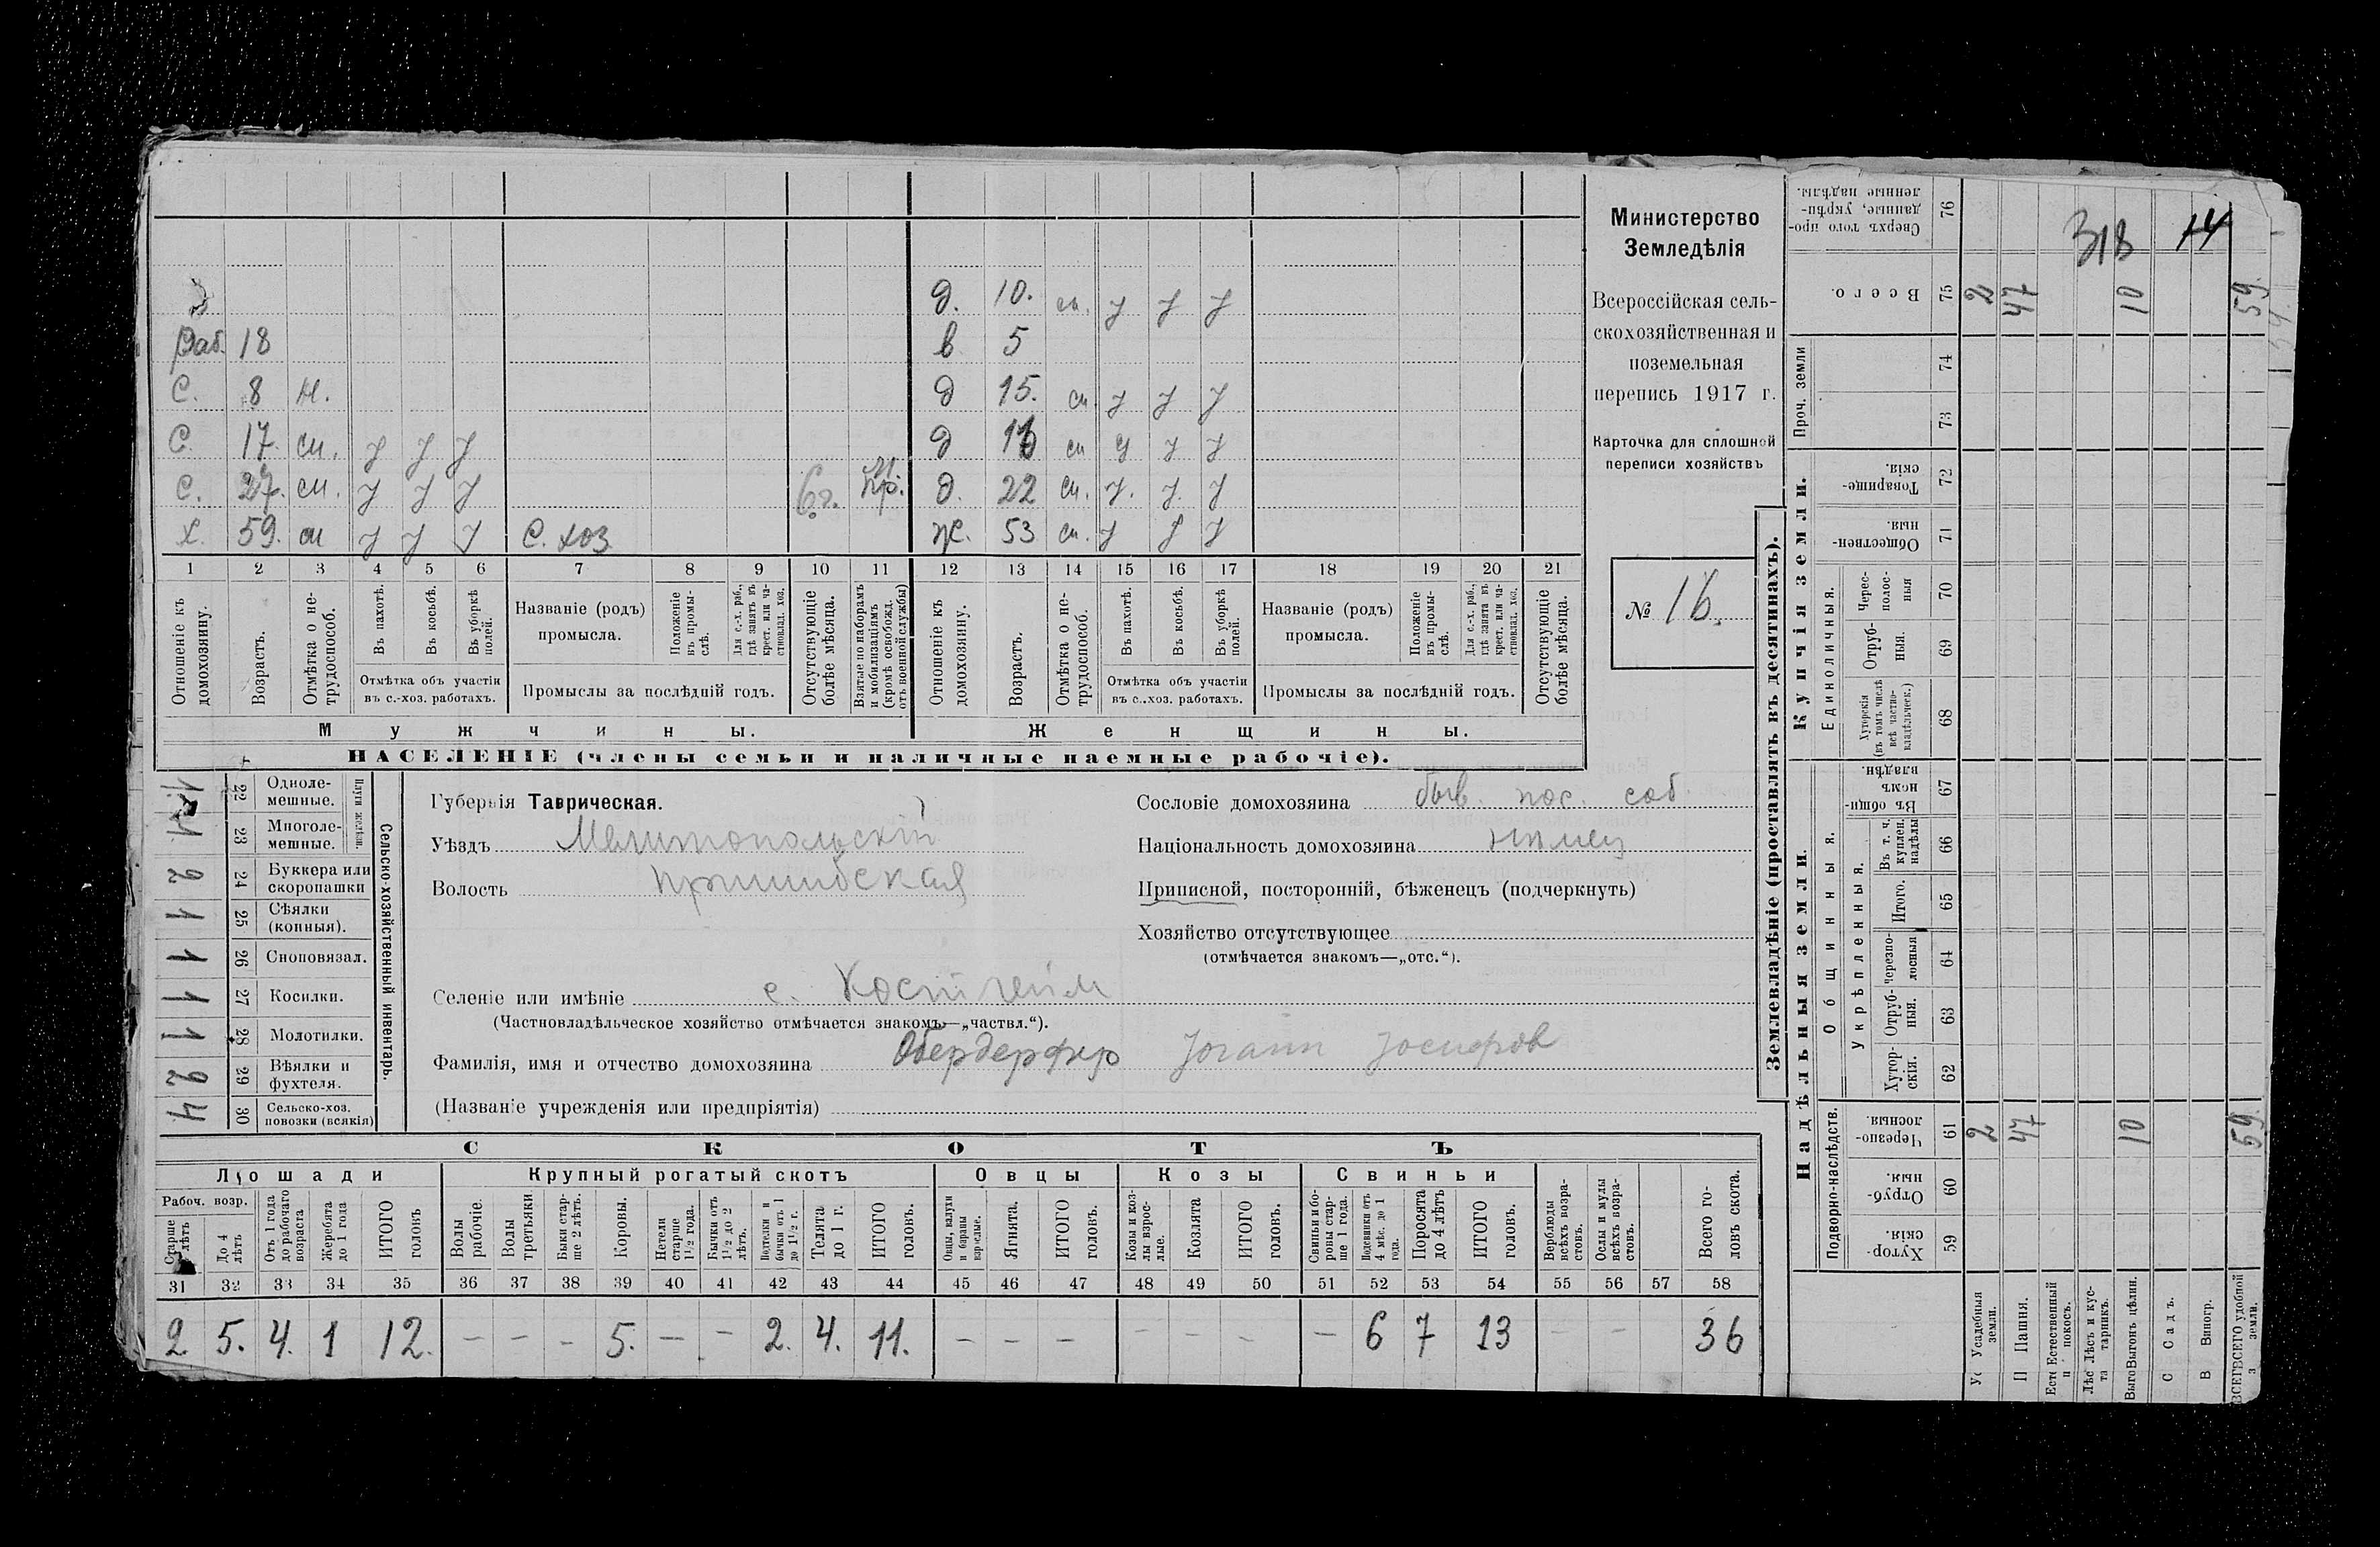 Министерство
Земледѣлія
Всероссійская сель-
скохозяйственная и
поземельная
перепись 1917 г.
Карточка для сплошной
переписи хозяйствъ
№ 16.
318 14
д. 10. сл. у у у
Раб. 18 в 5
С. 8 н. д 15. сл. у у у
С. 17. сл. у у у д 1 сл у у у
С. 27. сл. у у у 6 г. д. 22 сл. у. у. у
Х. 59. сл у у у С. хоз. Ж. 53 сл. у у у
1 2 3 4 5 6 7 8 9 10 11 12 13 14 15 16 17 18 19 20 21
Отношеніе къ домохозяину.
Возрастъ.
Отмѣтка о не-трудоспособ.
Въ пахотѣ.
Въ косьбѣ.
Въ уборкѣ полей.
Отмѣтка объ участіи въ с.-хоз. работахъ.
Названіе (родъ) промысла.
Положеніе въ промы-слѣ.
Для с.-х. раб., гдѣ занятъ въ крест. или ча-стновлад. хоз.
Промыслы за послѣдній годъ.
Отсутствующіе болѣе мѣсяца.
Взятые по наборамъ и мобилизаціямъ (кромѣ освобожд. отъ военной службы)
Отношеніе къ домохозяину.
Возрастъ.
Отмѣтка о не-трудоспособ.
Въ пахотѣ.
Въ косьбѣ.
Въ уборкѣ полей.
Отмѣтка объ участіи въ с..хоз. работахъ.
Названіе (родъ) промысла.
Положеніе въ промы-слѣ.
Для с.-х. раб., гдѣ занята въ крест. или ча-стновлад. хоз.
Промыслы за послѣдній годъ.
Отсутствующіе болѣе мѣсяца.
Мужчины. Женщины.
НАСЕЛЕНІЕ (члены семьи и наличные наемные рабочіе).
Сельско-хозяйственный инвентарь.
Плуги желѣзн.
1 22 Одноле-мешные.
1 23 Многоле-мешные.
2 24 Буккера или скоропашки
1 25 Сѣялки (конныя).
1 26 Сноповязал.
1 27 Косилки.
1 28 Молотилки.
2 29 Вѣялки и фухтеля.
4 30 Сельско-хоз. повозки (всякія)
Губернія Таврическая.
Уѣздъ Мелитопольскій
Волость Пришибская
Селеніе или имѣніе с. Костгейм
(Частновладѣльческое хозяйство отмѣчается знакомъ—„частвл.“).
Фамилія, имя и отчество домохозяина Обердерфер Іоганн Іосифов
(Названіе учрежденія или предпріятія)
Сословіе домохозяина быв. пос. соб.
Національность домохозяина нѣмец
Приписной, посторонній, бѣженецъ (подчеркнуть)
Хозяйство отсутствующее
(отмѣчается знакомъ—„отс.“).
СКОТЪ
Лошади Крупный рогатый скотъ Овцы Козы Свиньи
Рабоч. возр.
Старше 4 лѣтъ
До 4 лѣтъ
Отъ 1 года до рабочаго возраста
Жеребята до 1 года
ИТОГО головъ
Волы рабочіе.
Волы третьяки.
Быки стар-ше 2 лѣтъ.
Коровы.
Нетели старше 1½ года.
Бычки отъ 1½ до 2 лѣтъ.
Подтелки и бычки отъ 1 до 1½ г.
Телята до 1 г.
ИТОГО головъ.
Овцы, валухи и бараны взрослые.
Ягнята.
ИТОГО головъ.
Козы и коз-лы взрос-лые.
Козлята
ИТОГО головъ.
Свиньи и бо-ровы стар-ше 1 года.
Подсвинки отъ 4 мѣс. до 1 года.
Поросята до 4 лѣтъ
ИТОГО головъ.
Верблюды всѣхъ возра-стовъ.
Ослы и мулы всѣхъ возра-стовъ.
Всего го-ловъ скота.
31 32 33 34 35 36 37 38 39 40 41 42 43 44 45 46 47 48 49 50 51 52 53 54 55 56 57 58
2 5. 4. 1 12. — — — 5. — — 2. 4. 11. — — — — — — — 6 7 13 — — 36
Землевладѣніе (проставлять въ десятинахъ).
Купчія земли.
Надѣльныя земли.
Сверхъ того про-данные, укрѣп-ленные надѣлы. 76
Всего. 75 2 47 10 59.
Проч. земли 74 73
Товарище-скія. 72
Обществен-ныя. 71
Единоличныя.
Черес-полос-ныя 70
Отруб-ныя. 69
Хуторскія (въ томъ числѣ всѣ частно-владѣльческ.) 68
Общинныя.
Въ общин-номъ владѣн. 67
Укрѣпленныя.
Въ т. ч. куплен. надѣлы 66
Итого. 65
Черезпо-лосныя 64
Отруб-ныя. 63
Хутор-скія. 62
Подворно-наслѣдств.
Черезпо-лосныя. 61 2 47 10 59.
Отруб-ныя. 60
Хутор-скія. 59
Усадебныя земли.
Пашня.
Естественный покосъ.
Лѣсъ и кус-тарникъ.
Выгонъ цѣлин.
Садъ.
Виногр.
ВСЕГО удобной земли.